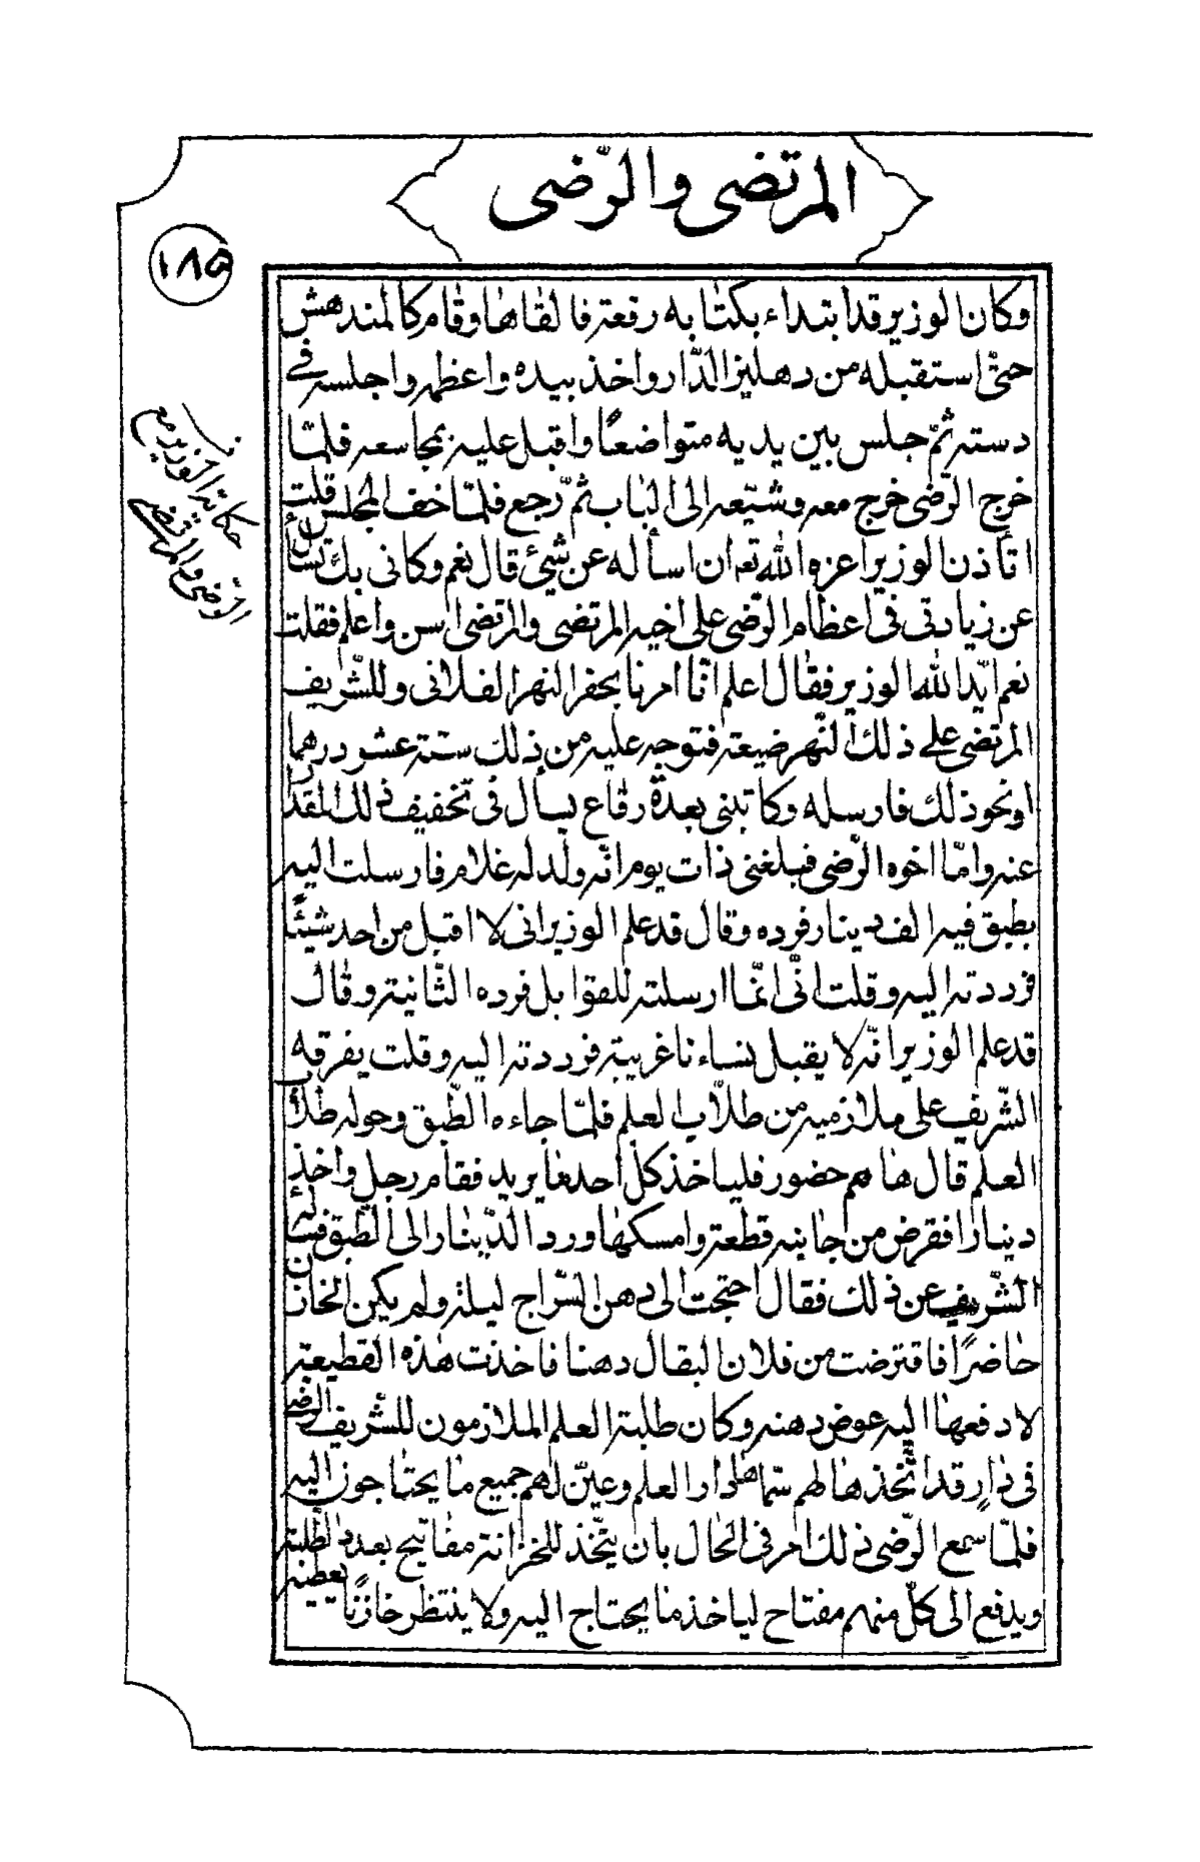 المرتضى والرّضى
١٨٥
وكان الوزير قد ابتداء بكتابه رقعة فالقاها وقام كالمندهش
حتّى استقبله من دهليز الدّار واخذ بيده واعظمه واجلسه فى
دسته ثمّ جلس بين يديه متواضعًا واقبل عليه بمجامعه فلمّا
خرج الرّضى خرج معه وشيّعه الى الباب ثمّ رجع فلمّا خف المجلس قلت
اتأذن الوزير اعزه الله تعه ان اسأله عن شيئ قال نعم وكانى بك تسأل
عن زيادتى فى اعظام الرّضى على اخيه المرتضى والمرتضى اسن واعلم فقلت
نعم ايّد الله الوزير فقال اعلم انّا امرنا بحفر النهر الفلانى وللشّريف
المرتضى على ذلك النّهر ضيعة فتوجه عليه من ذلك ستة عشر درهما
او نحو ذلك فارسله وكاتبنى بعدة رقاع يسأل فى تخفيف ذلك المقدار
عنه وامّا اخوه الرّضى فبلغنى ذات يوم انّه ولد له غلام فارسلت اليه
بطبق فيه الف دينار فرده وقال قد علم الوزير انى لا اقبل من احد شيئًا
فرددته اليه وقلت انّى انّما ارسلته للقوابل فرده الثّانية وقال
قد علم الوزير انّه لا يقبل نساءنا غريبة فرددته اليه وقلت يفرقه
الشّريف على ملازميه من طلّاب العلم فلمّا جاءه الطّبق وحوله طلّاب
العلم قال ها هم حضور فلياخذ كلّ احد ما يريد فقام رجل واخذ
دينارا فقرض من جانبه قطعة وامسكها ورد الدّينار الى الطّبق فسئله
الشّريف عن ذلك فقال احتجت الى دهن السّراج ليلة ولم يكن الخازن
حاضرًا فاقترضت من فلان البقال دهنا فاخذت هذه القطيعة
لادفعها اليه عوض دهنه وكان طلبة العلم الملازمون للشّريف الرضى
فى دار قد اتّخذها لهم سمّاها دار العلم وعيّن لهم جميع ما يحتاجون اليه
فلمّا سمع الرّضى ذلك امر فى الحال بان يتّخذ للخزانة مفاتيح بعدد الطّلبة
ويدفع الى كلّ منهم مفتاح لياخذ ما يحتاج اليه ولا ينتظر خازنًا يعطيه
حكاية الوزير مع
الرّضى والمرتضى